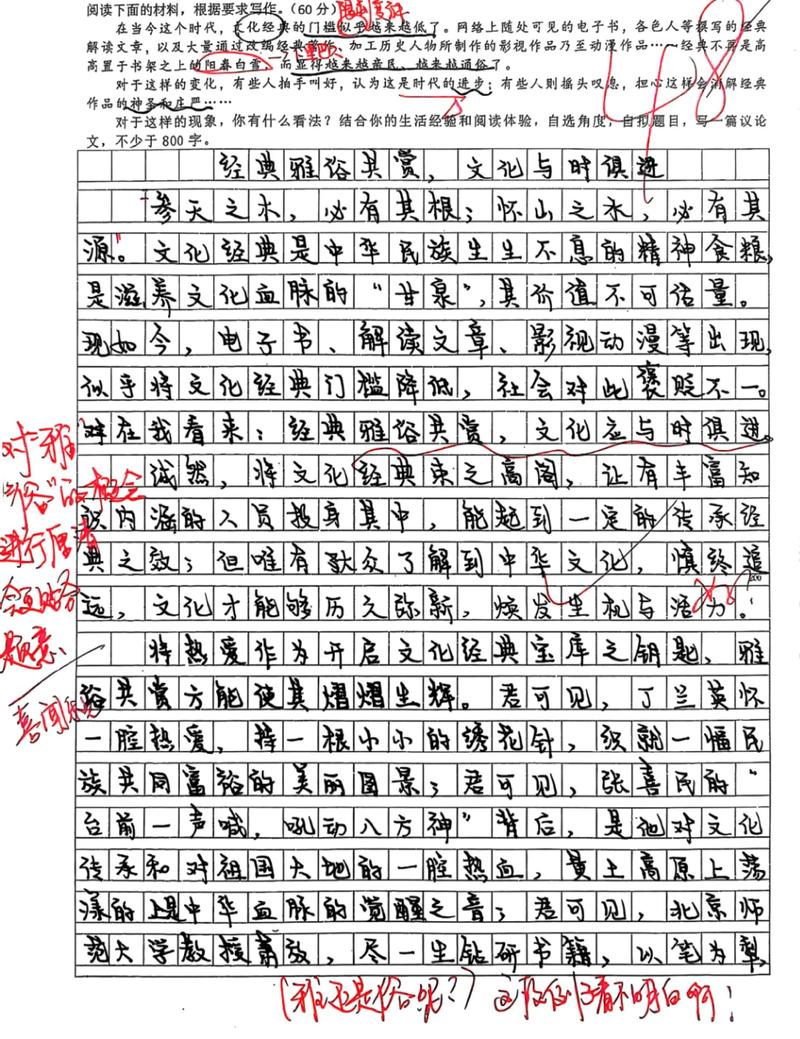 阅读下面的材料，根据要求写作。（60分）
在当今这个时代，文化经典的门槛似乎越来越低了。网络上随处可见的电子书，各色人等撰写的经典
解读文章，以及大量通过改编经典著作、加工历史人物所制作的影视作品乃至动漫作品……经典不再是高
高置于书架之上的阳春白雪，而显得越来越亲民、越来越通俗了。
对于这样的变化，有些人拍手叫好，认为这是时代的进步；有些人则摇头叹息，担心这样会消解经典
作品的神圣和庄严……
对于这样的现象，你有什么看法？结合你的生活经验和阅读体验，自选角度，自拟题目，写一篇议论
文，不少于800字。
48
经典雅俗共赏，文化与时俱进
参天之木，必有其根；怀山之水，必有其
源。文化经典是中华民族生生不息的精神食粮，
是滋养文化血脉的“甘泉”，其价值不可估量。
现如今，电子书、解读文章、影视动漫等出现，
似乎将文化经典门槛降低，社会对此褒贬不一。
对在我看来：经典雅俗共赏，文化应与时俱进。
诚然，将文化经典束之高阁，让有丰富知
识内涵的人员投身其中，能起到一定的传承经
典之效；但唯有大众了解到中华文化，慎终追
远，文化才能够历久弥新，焕发生机与活力！
将热爱作为开启文化经典宝库之钥匙，雅
俗共赏方能使其熠熠生辉。君可见，丁兰英怀
一腔热爱，择一根小小的绣花针，织就一幅民
族共同富裕的美丽图景；君可见，张喜民的“
台前一声喊，吼动八方神”背后，是他对文化
传承和对祖国大地的一腔热血，黄土高原上荡
漾的是中华血脉的觉醒之音；君可见，北京师
范大学教授萧放，尽一生钻研书籍，以笔为犁，
对“雅
俗”的概念
进行厘清
会更贴合
题意
（雅还是俗呢？）这段例子看不明白啊！